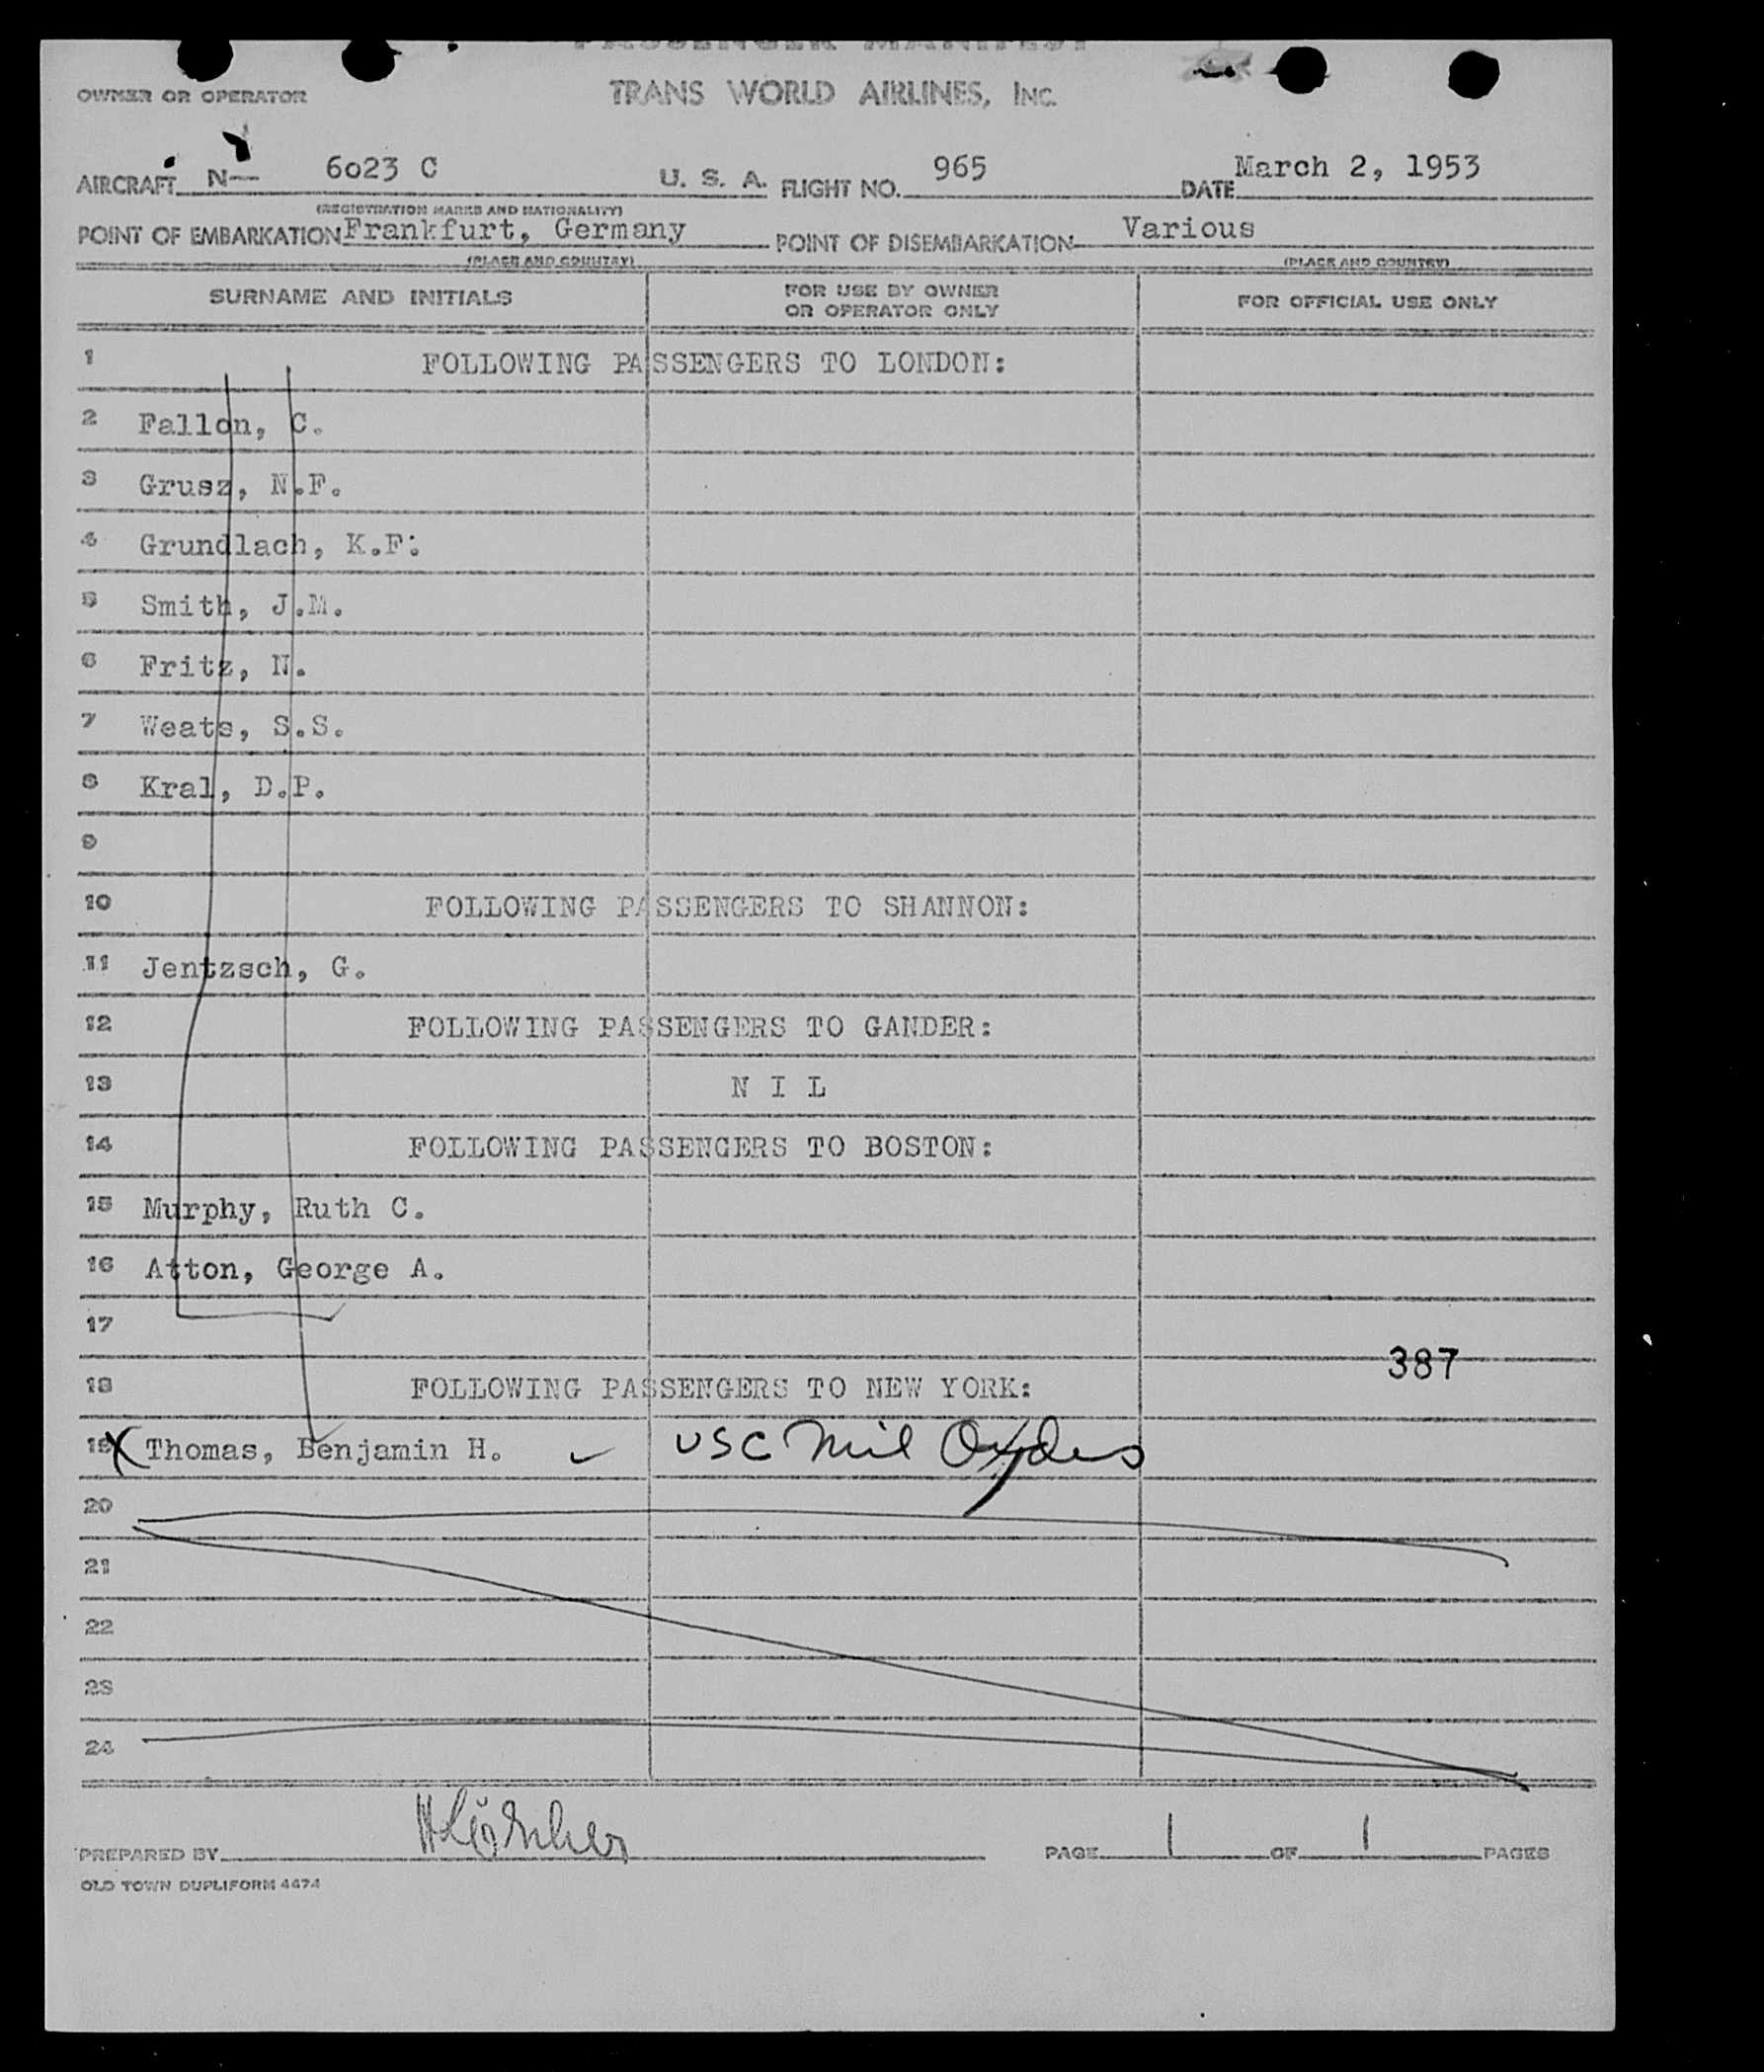 PASSENGER MANIFEST
OWNER OR OPERATOR TRANS WORLD AIRLINES, INC.
AIRCRAFT N— 6023 C U. S. A. FLIGHT NO. 965 DATE March 2, 1953
(REGISTRATION MARKS AND NATIONALITY)
POINT OF EMBARKATION Frankfurt, Germany POINT OF DISEMBARKATION Various
(PLACE AND COUNTRY) (PLACE AND COUNTRY)
SURNAME AND INITIALS FOR USE BY OWNER OR OPERATOR ONLY FOR OFFICIAL USE ONLY
1 FOLLOWING PASSENGERS TO LONDON:
2 Fallon, C.
3 Grusz, N.F.
4 Grundlach, K.F.
5 Smith, J.M.
6 Fritz, N.
7 Weats, S.S.
8 Kral, D.P.
9
10 FOLLOWING PASSENGERS TO SHANNON:
11 Jentzsch, G.
12 FOLLOWING PASSENGERS TO GANDER:
13 N I L
14 FOLLOWING PASSENGERS TO BOSTON:
15 Murphy, Ruth C.
16 Atton, George A.
17
387
18 FOLLOWING PASSENGERS TO NEW YORK:
19 X Thomas, Benjamin H. ✓ USC Mil Orders
20
21
22
23
24
PREPARED BY PAGE 1 OF 1 PAGES
OLD TOWN DUPLIFORM 4474